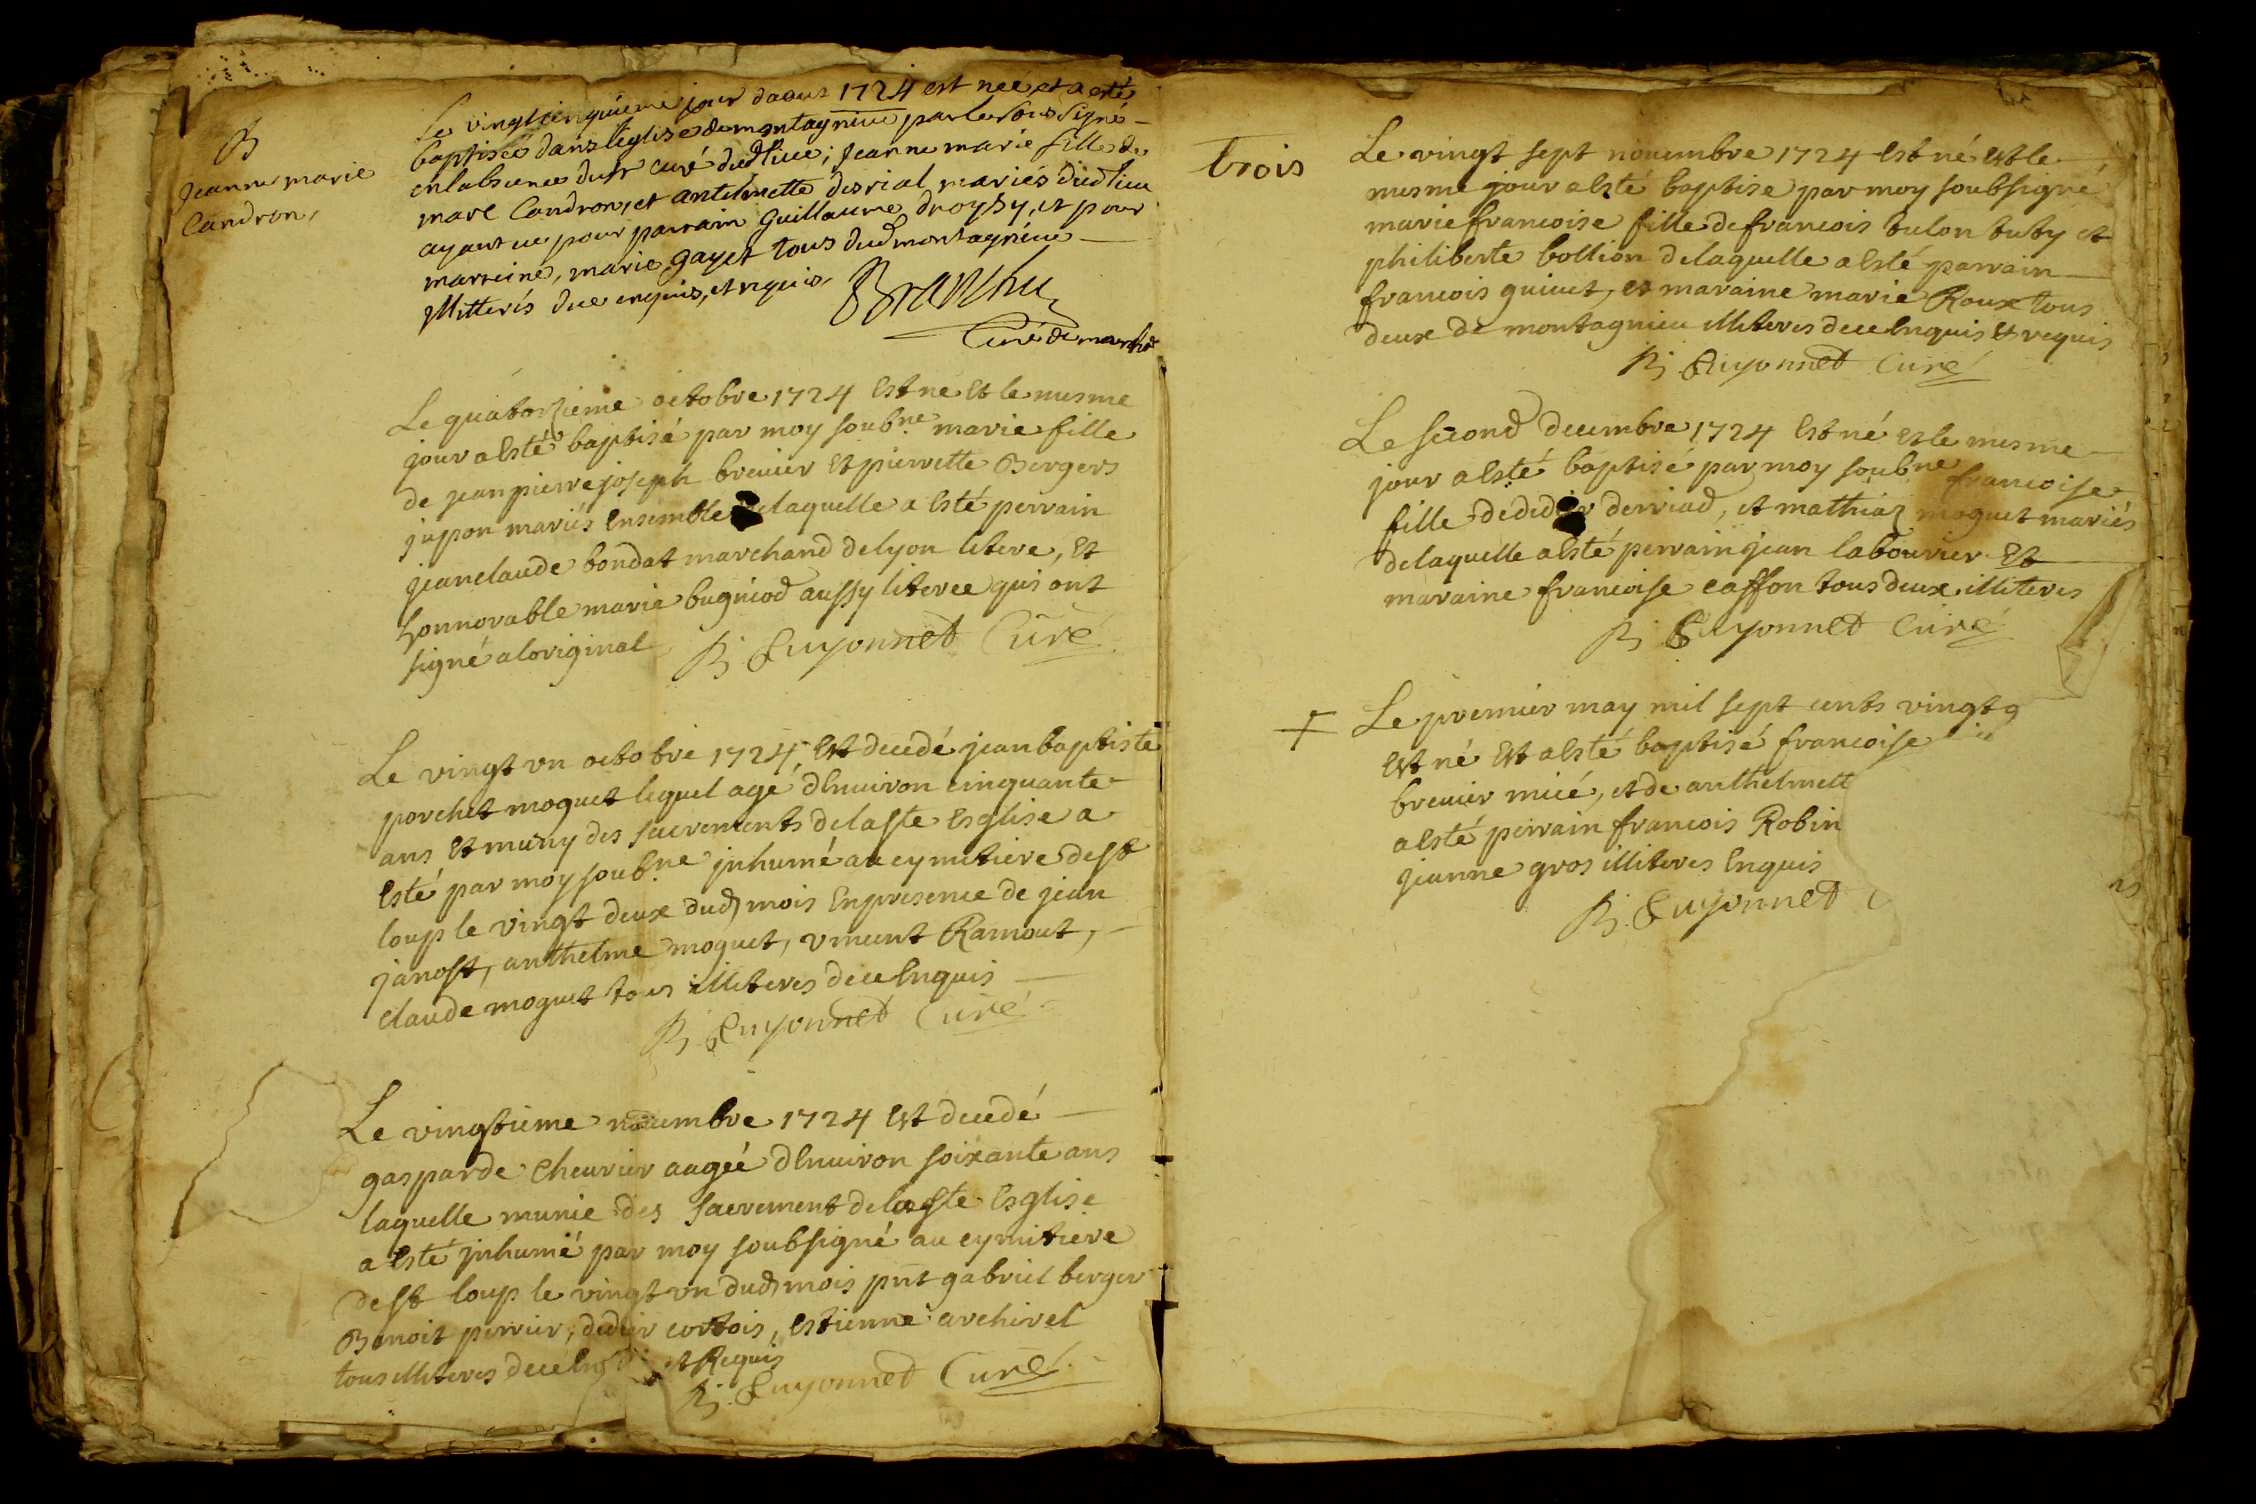 B
Jeanne marie
Candron,
Le vingt cinquieme jour daout 1724 est neé et a esté
baptisée dans l'eglise de montagnieu par le sous signé
en labscence du sr curé dud lieu; Jeanne marie fille de
marc Candron, et antelmette desrial mariés dud lieu
ayant eu pour parrain Guillaume droysy, et pour
marreine, marie gayet tous dud montagnieu
illitterés de ce enquis, et requis,
Curé de
Le quatorzieme octobre 1724 Est né Et le mesme
jour a Esté baptisé par moy soubne marie fille
de jean pierre joseph breuier Et pierrette Bergers
jupon mariés Ensemble delaquelle a Esté perrain
jean claude bondat marchand de lyon litere, Et
honnorable marie bugniod aussy literee qui ont
signé a loriginal
Bj Guyonned Curé
Le vingt vn octobre 1724, Est decedé jean baptiste
porchet moguet lequel agé dEnuiron cinquante
ans Et muny des sacrements de la ste Esglise a
Esté par moy soubne jnhumé au cymetiere de st
loup le vingt deux dud mois En presence de jean
janost, anthelme moguet, vincent Ramout,
claude moguet tous illiteres de ce Enquis
Bj Guyonned Curé
Le vingtieme nouembre 1724 Est decedé
gasparde Cheurier aageé dEnuiron soixante ans
laquelle munie des sacrement de la ste Esglise
a Esté jnhumé par moy soubsigné au cymitiere
de st loup le vingt vn dud mois pnt gabriel berger
Benoit perrier, didier cortois, Estienne archirel
tous illiteres de ce et Requis
Bj Guyonned Curé
trois
Le vingt sept nouembre 1724 Est né Et le
mesme jour a Esté baptise par moy soubsigné
marie francoise fille de francois tulon tuby et
philiberte bollion delaquelle a Esté parrain
francois guiuet, et maraine marie Roux tous
deux de montagnieu illiteres de ce Enquis Et requis
Bj Guyonned Curé
Le second decembre 1724 Est né et le mesme
jour a Esté baptisé par moy soubne francoise
fille de didier derriad, et mathiaz moguet mariés
delaquelle a Esté perrain jean labourier Et
maraine francoise casson tous deux illiteres
Bj Guyonned Curé
Le premier may mil sept cents vingt q
Est né Et a Esté baptisé francoise
breuier micé, et de anthelmett
a Esté perrain francois Robin
jeanne gros illiteres Enquis
Bj. Guyonned C